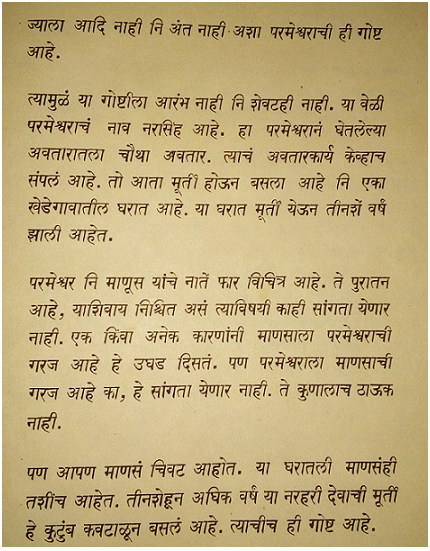 ज्याला आदि नाही नि अंत नाही अशा परमेश्वराची ही गोष्ट
आहे.
त्यामुळं या गोष्टीला आरंभ नाही नि शेवटही नाही. या वेळी
परमेश्वराचं नाव नरसिंह आहे. हा परमेश्वरानं घेतलेल्या
अवतारातला चौथा अवतार. त्याचं अवतारकार्य केव्हाच
संपलं आहे. तो आता मूर्ती होऊन बसला आहे नि एका
खेडेगावातील घरात आहे. या घरात मूर्ती येऊन तीनशें वर्षं
झाली आहेत.
परमेश्वर नि माणूस यांचे नातें फार विचित्र आहे. ते पुरातन
आहे, याशिवाय निश्चित असं त्याविषयी काही सांगता येणार
नाही. एक किंवा अनेक कारणांनी माणसाला परमेश्वराची
गरज आहे हे उघड दिसतं. पण परमेश्वराला माणसाची
गरज आहे का, हे सांगता येणार नाही. ते कुणालाच ठाऊक
नाही.
पण आपण माणसं चिवट आहोत. या घरातली माणसंही
तशींच आहेत. तीनशेहून अधिक वर्षं या नरहरी देवाची मूर्ती
हे कुटुंब कवटाळून बसलं आहे. त्याचीच ही गोष्ट आहे.